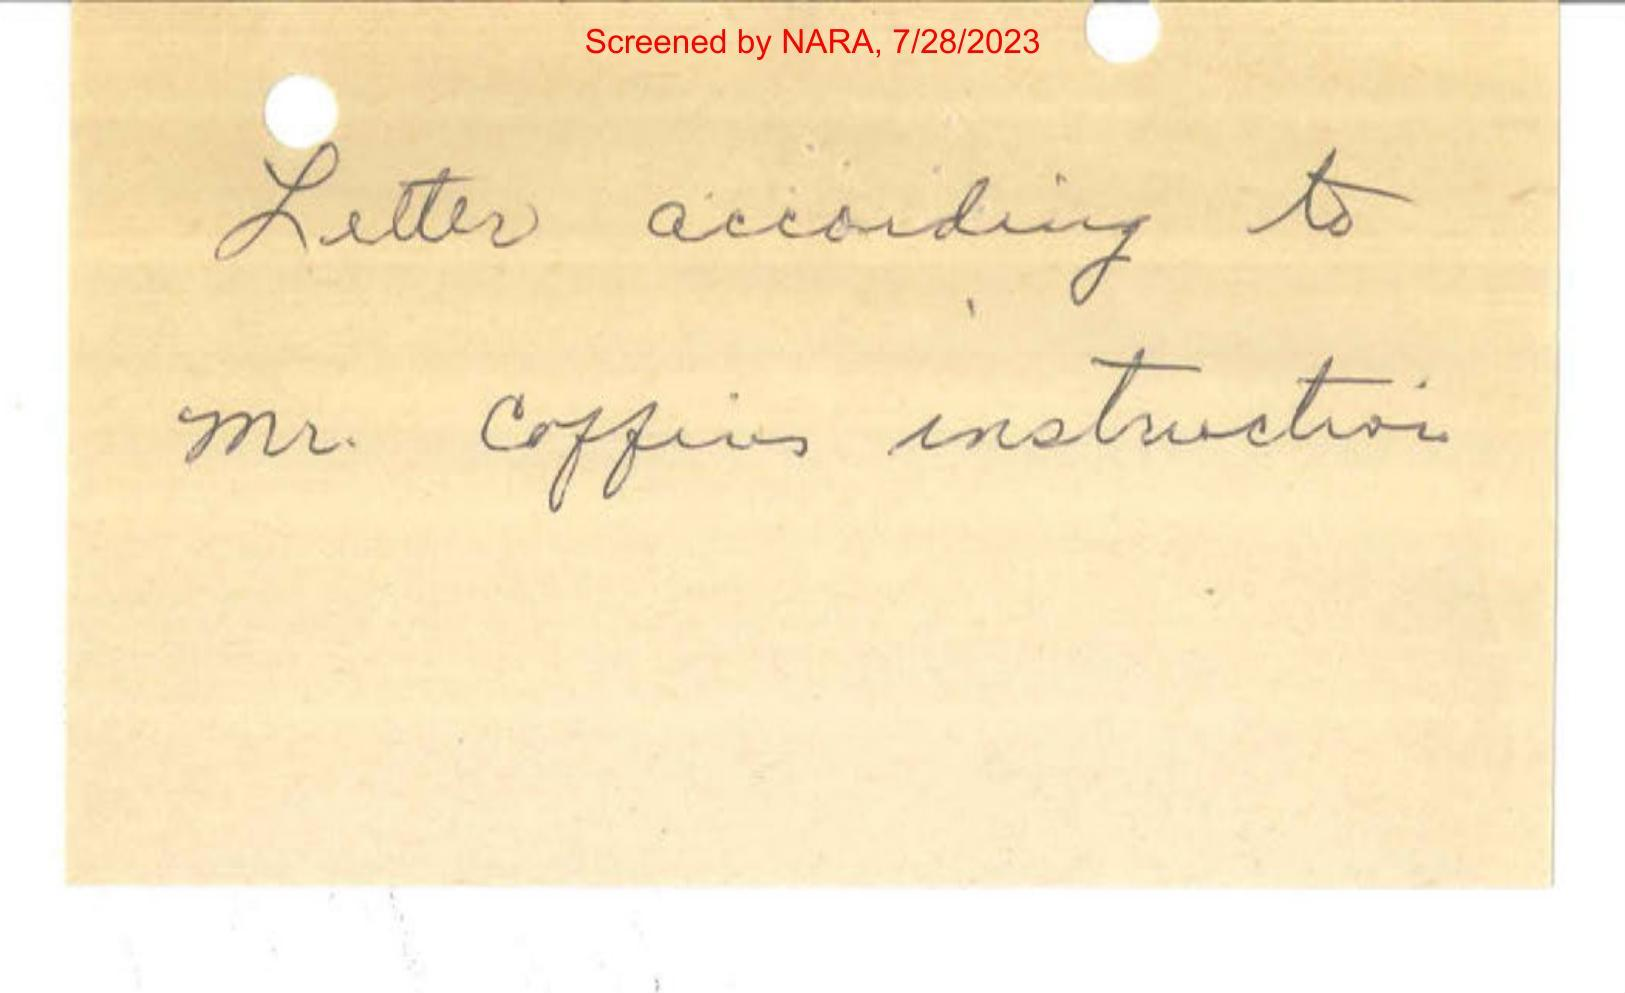 Screened by NARA, 7/28/2023
Letter according to
Mr. Coffins instruction